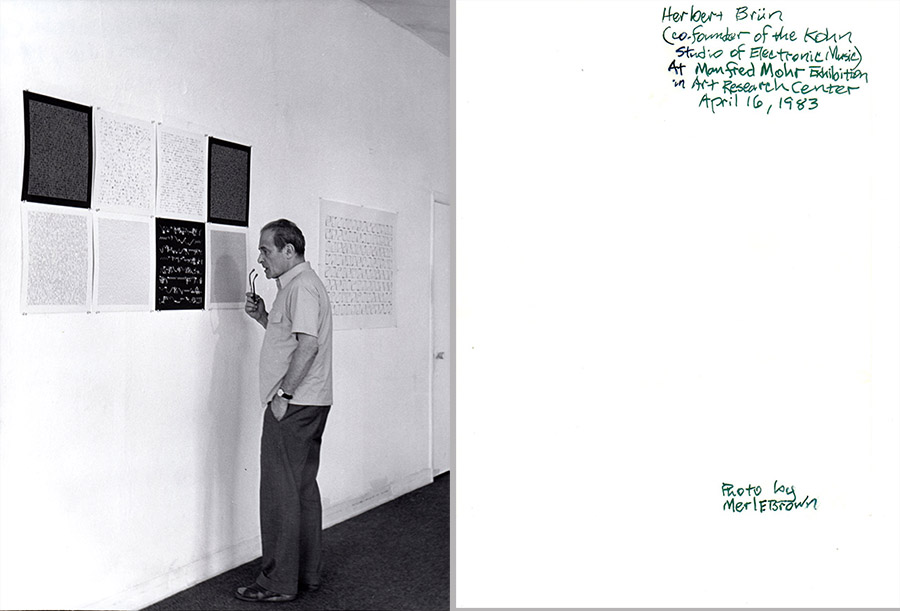 Herbert Brün
(co-founder of the Kohn
Studio of Electronic Music)
At Manfred Mohr Exhibition
in Art Research Center
April 16, 1983
Photo by
Merl E Brown